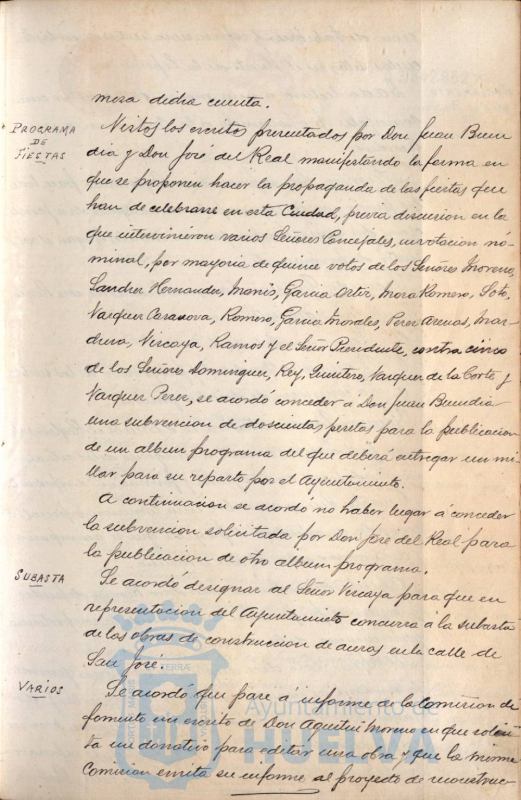 mera dicha cuenta.
PROGRAMA
DE
FIESTAS
Vistos los escritos presentados por Don Juan Buen
dia y Don José del Real manifestando la forma en
que se proponen hacer la propaganda de las fiestas que
han de celebrarse en esta Ciudad, previa discusion en la
que intervinieron varios Señores Concejales, en votacion nó-
minal, por mayoria de quince votos de los Señores Moreno,
Sanchez Hernandez, Garcia Ortiz, Mora Romero, Soto,
Vazquez Casanova, Romero, Garcia Morales, Perez Arenas,
Vizcaya, Ramos y el Señor Presidente, contra cinco
de los Señores Dominguez, Rey, Quintero, Vazquez de la Corte y
Vazquez Perez, se acordó conceder á Don Juan Buendia
una subvencion de doscientas pesetas para la publicacion
de un album programa del que deberá entregar un mi-
llar para su reparto por el Ayuntamiento.
A continuacion se acordó no haber lugar á conceder
la subvencion solicitada por Don José del Real para
la publicacion de otro álbum programa.
SUBASTA
Se acordó designar al Señor Vizcaya para que en
representacion del Ayuntamiento concurra a la subasta
de las obras de construccion de aceras en la calle de
San José.
VARIOS
Se acordó que pase á informe de la Comision de
fomento un escrito de Don Agustin Moreno en que solici-
ta un donativo para editar una obra y que la misma
Comision emita su informe al proyecto de reconstruc-
Ayuntamiento de